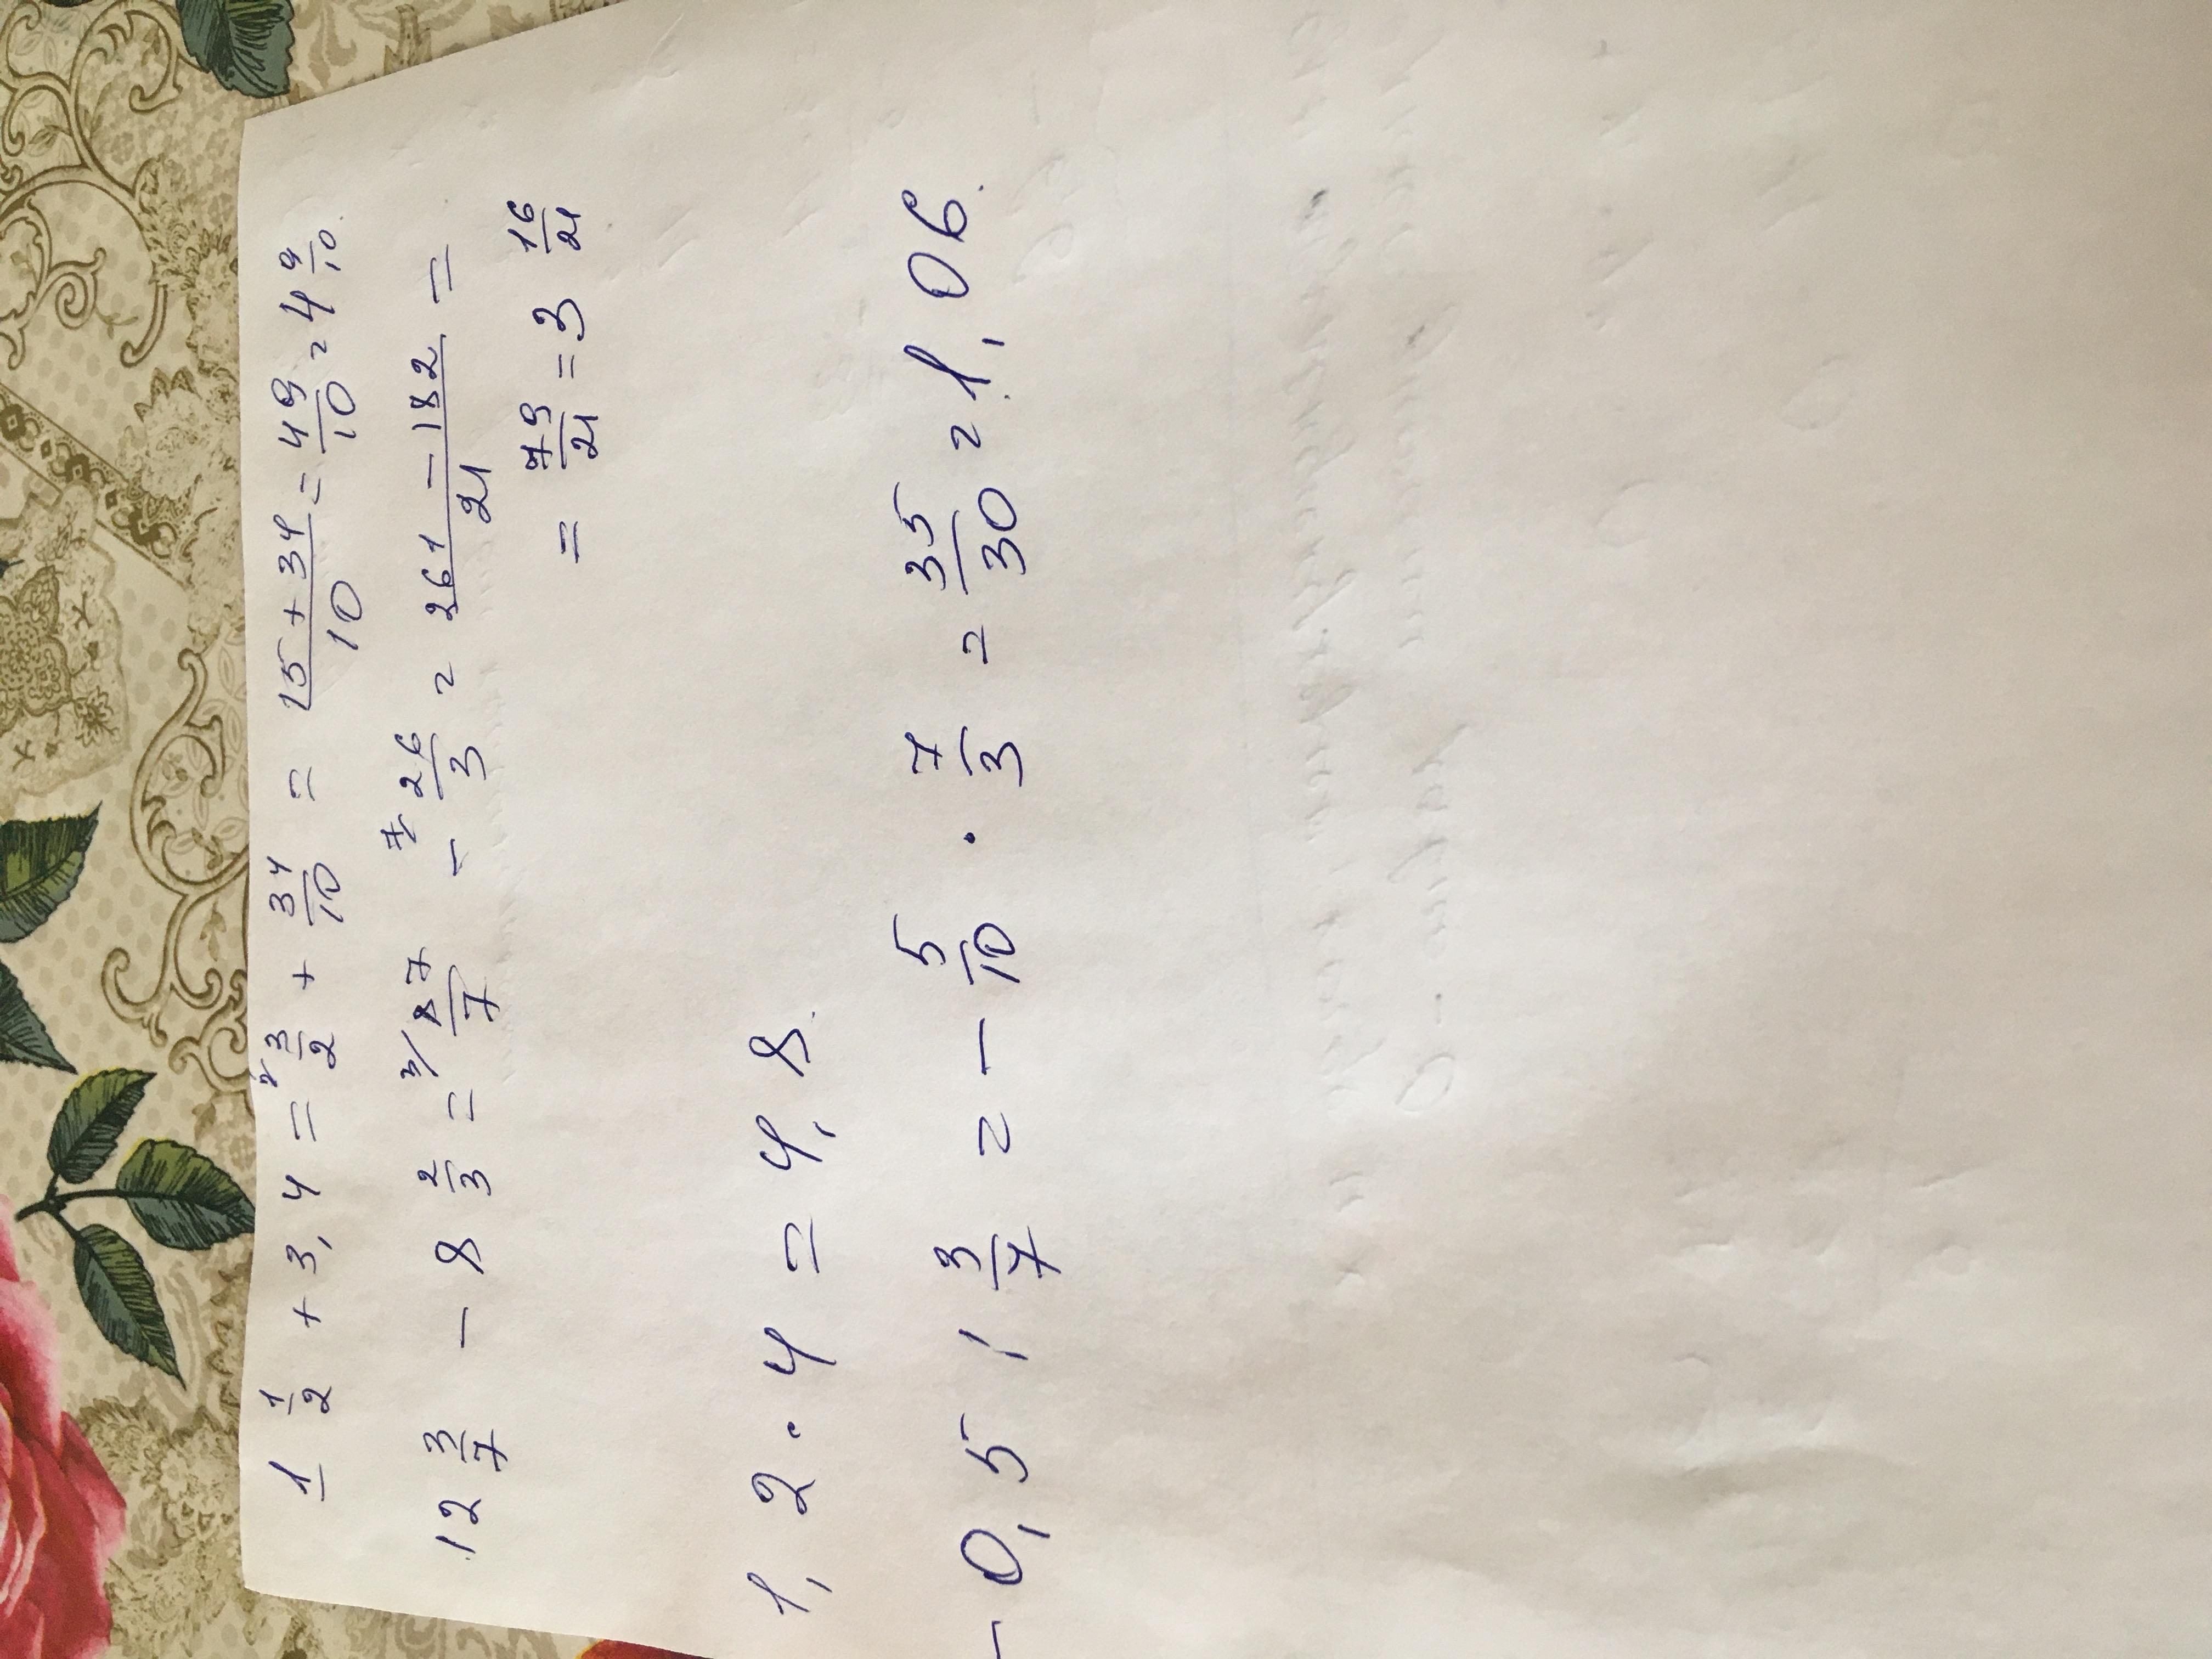 1 1/2 + 3,4 = 2/ 3/2 + 34/10 = 15+34/10 = 49/10 = 4 9/10.
12 3/7 - 8 2/3 = 3/ 87/7 - 7/ 26/3 = 261-182/21 =
= 79/21 = 3 16/21
1,2 · 4 = 4,8.
- 0,5 : 3/7 = - 5/10 · 7/3 = 35/30 = 1,06.